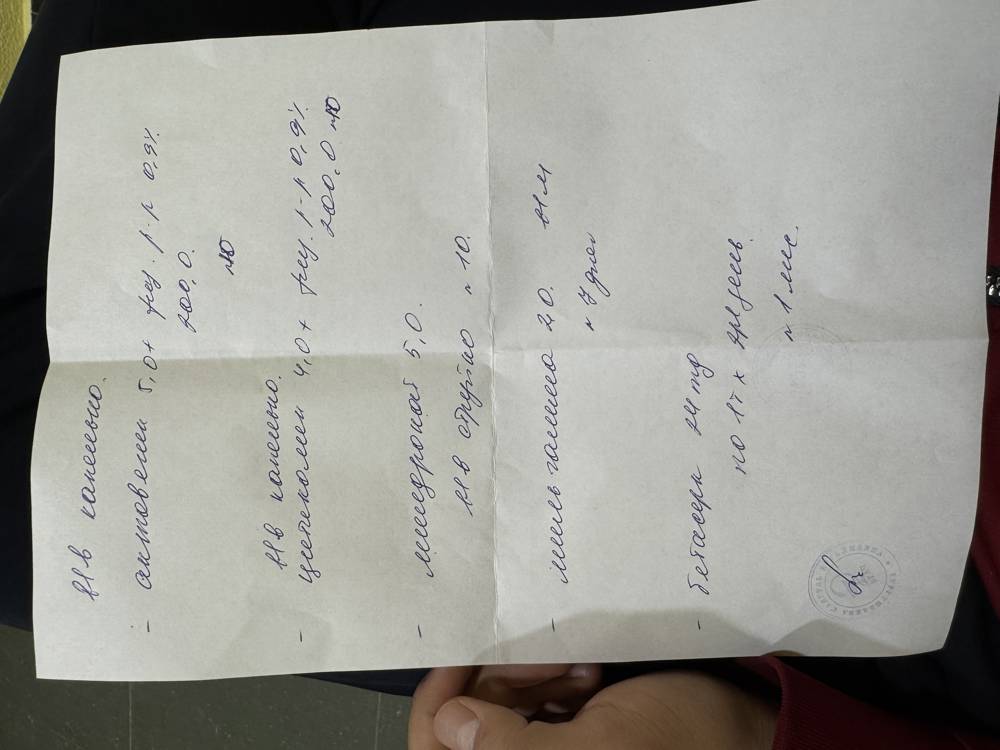 в/в капельно.
- актовегин 5,0 + физ. р-р 0,9%
200,0.
№10
в/в капельно.
- цитиколин 4,0 + физ. р-р 0,9%
200,0 №10
- милдронат 5,0.
в/в струйно № 10.
- мильгамма 2,0. в/м
№ 7 дней
- бетасерк 24 mg
по 1т х 2р/день.
№ 1 мес.